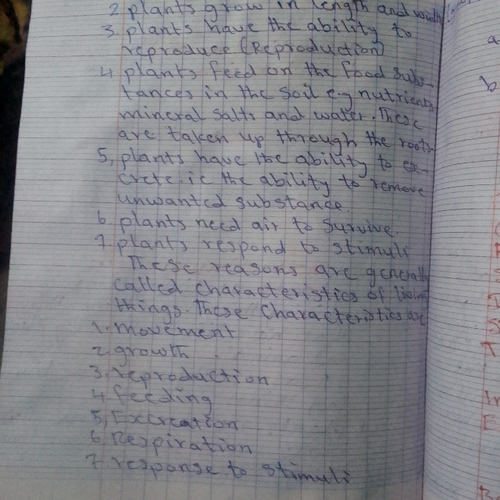 2. plants grow in length and width
3. plants have the ability to
reproduce (Reproduction)
4. plants feed on the food subs-
tances in the soil e.g nutrients
mineral salts and water. These
are taken up through the roots
5, plants have the ability to ex-
crete. i.e the ability to remove
unwanted substance
6. plants need air to survive.
7. plants respond to stimuli
These reasons are generally
called characteristics of living
things. These characteristics are
1. movement
2. growth
3. reproduction
4. feeding
5, Excreation
6. Respiration
7. response to stimuli
a
b